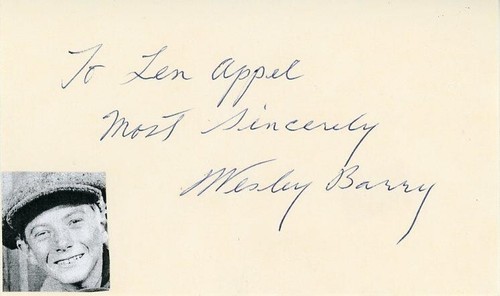 To Len Appel
Most Sincerely
Wesley Barry